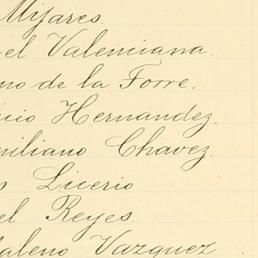 Mijares.
el Valenciana.
no de la Torre.
icio Hernandez.
miliano Chavez.
s Licerio
el Reyes.
daleno Vazquez.